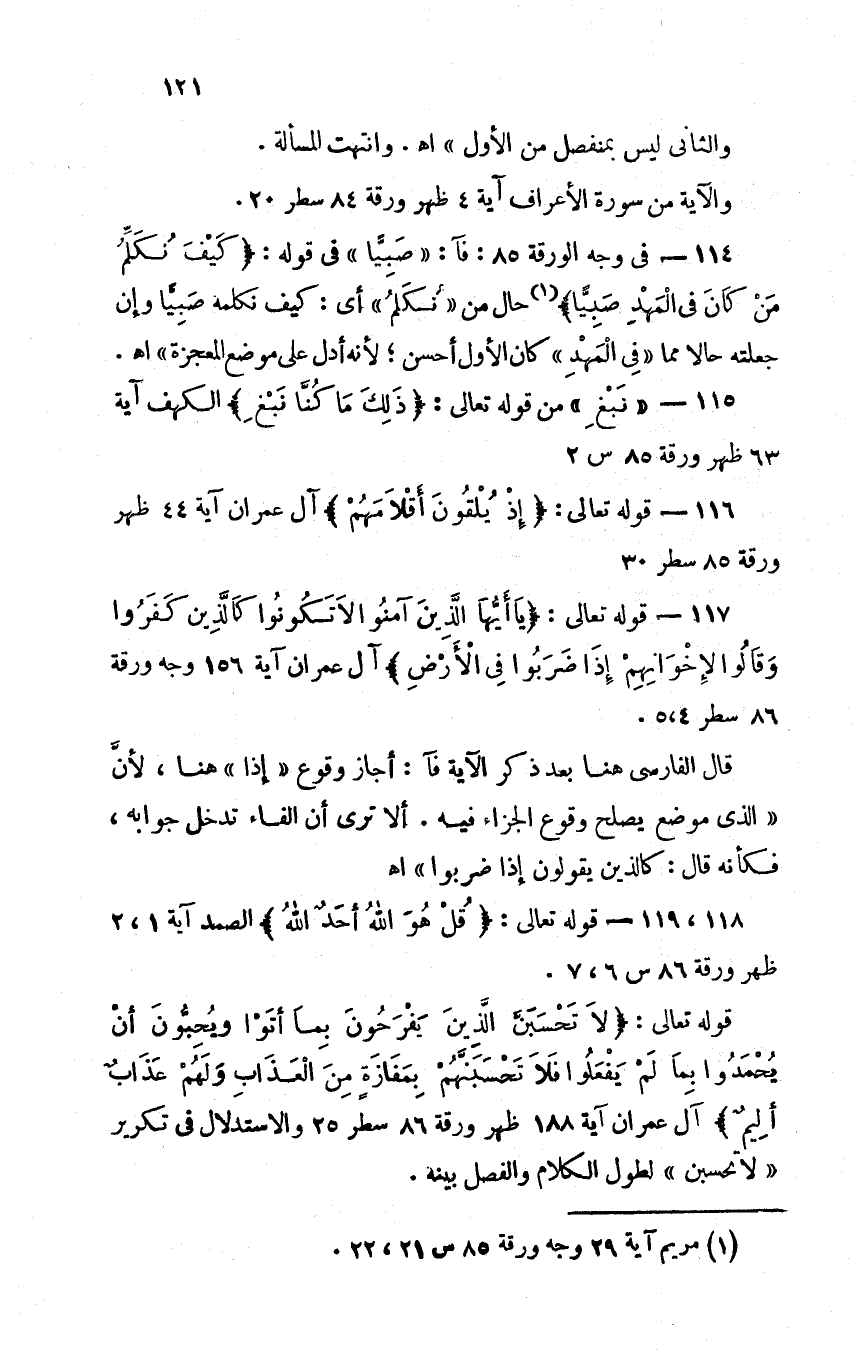 ١٢١
والثانى ليس بمنفصل من الأول » اه . وانتهت المسألة .
والآية من سورة الأعراف آية ٤ ظهر ورقة ٨٤ سطر ٢٠.
١١٤ — فى وجه الورقة ٨٥ : فآ : « صَبِيًّا » فى قوله : ﴿ كَيْفَ نُكَلِّمُ
مَنْ كَانَ فِى الْمَهْدِ صَبِيًّا﴾(١) حال من « نُكَلِّمُ » أى : كيف نكلمه صَبِيًّا وإن
جعلته حالا مما « فِى الْمَهْدِ » كان الأول أحسن ؛ لأنه أدل على موضع المعجزة » اه .
١١٥ — « نَبْغِ » من قوله تعالى : ﴿ ذَلِكَ مَا كُنَّا نَبْغِ ﴾ الكهف آية
٦٣ ظهر ورقة ٨٥ س ٢
١١٦ — قوله تعالى : ﴿ إِذْ يُلْقُونَ أَقْلَامَهُمْ ﴾ آل عمران آية ٤٤ ظهر
ورقة ٨٥ سطر ٣٠
١١٧ — قوله تعالى : ﴿يَاأَيُّهَا الَّذِينَ آمَنُوا لَاتَكُونُوا كَالَّذِينَ كَفَرُوا
وَقَالُوا لِإِخْوَانِهِمْ إِذَا ضَرَبُوا فِى الْأَرْضِ ﴾ آل عمران آية ١٥٦ وجه ورقة
٨٦ سطر ٥،٤ .
قال الفارسى هنا بعد ذكر الآية فآ : أجاز وقوع « إذا » هنا ، لأنَّ
« الذى موضع يصلح وقوع الجزاء فيه . ألا ترى أن الفاء تدخل جوابه ،
فكأنه قال : كالذين يقولون إذا ضربوا » اه
١١٨ ، ١١٩ — قوله تعالى : ﴿ قُلْ هُوَ اللهُ أَحَدٌ اللهُ ﴾ الصمد آية ١ ، ٢
ظهر ورقة ٨٦ س ٦ ، ٧ .
قوله تعالى : ﴿ لَا تَحْسَبَنَّ الَّذِينَ يَفْرَحُونَ بِمَا أَتَوْا ويُحِبُّونَ أنْ
يُحْمَدُوا بِمَا لَمْ يَفْعَلُوا فَلَا تَحْسَبَنَّهُمْ بِمَفَازَةٍ مِنَ الْعَذَابِ وَلَهُمْ عَذَابٌ
أَلِيمٌ ﴾ آل عمران آية ١٨٨ ظهر ورقة ٨٦ سطر ٢٥ والاستدلال فى تكرير
« لا تحسبن » لطول الكلام والفصل بينه .
(١) مريم آية ٢٩ وجه ورقة ٨٥ س ٢١ ، ٢٢ .